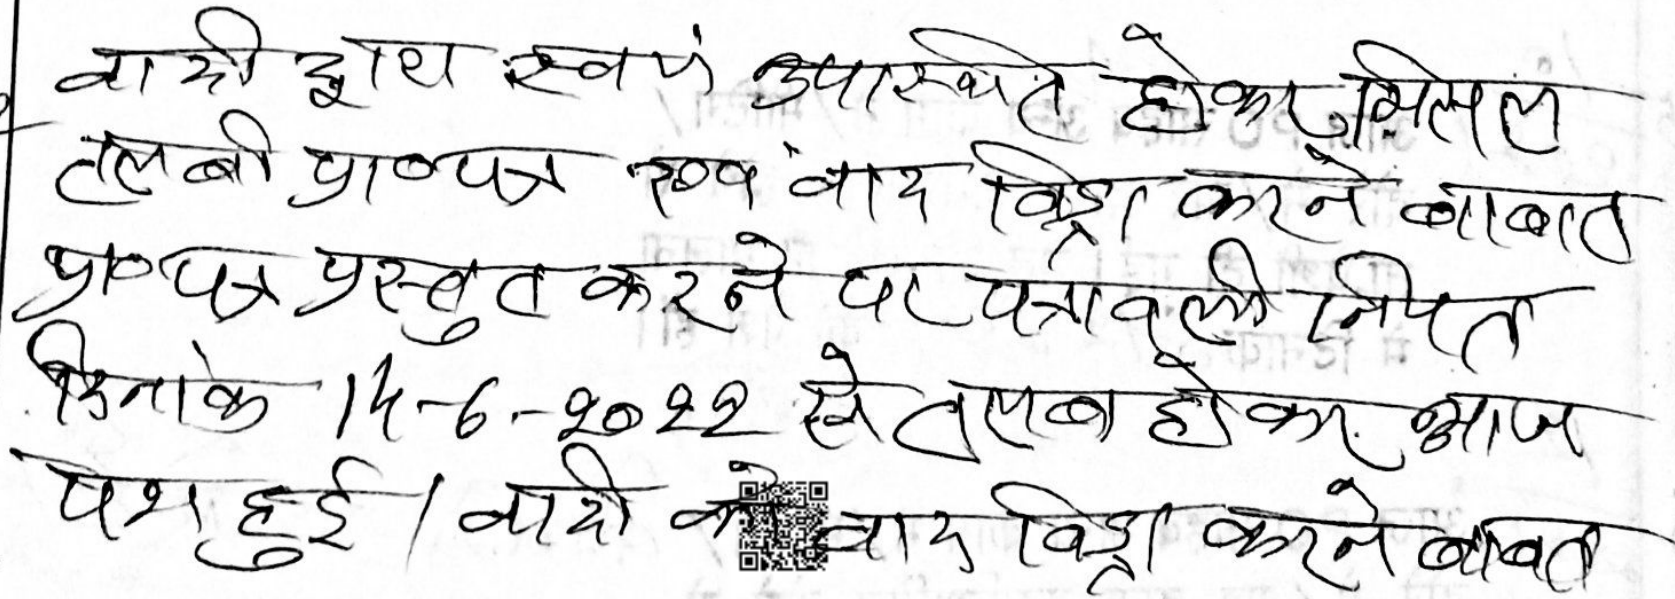 वादी द्वारा स्वयं उपस्थित होकर मिसल
तलबी प्रा०पत्र एवं वाद विड्रा करने बाबत
प्रा०पत्र प्रस्तुत करने पर पत्रावली नियत
दिनांक 14-6-2022 से तलब होकर आज
पेश हुई। वादी को वाद विड्रा करने बाबत